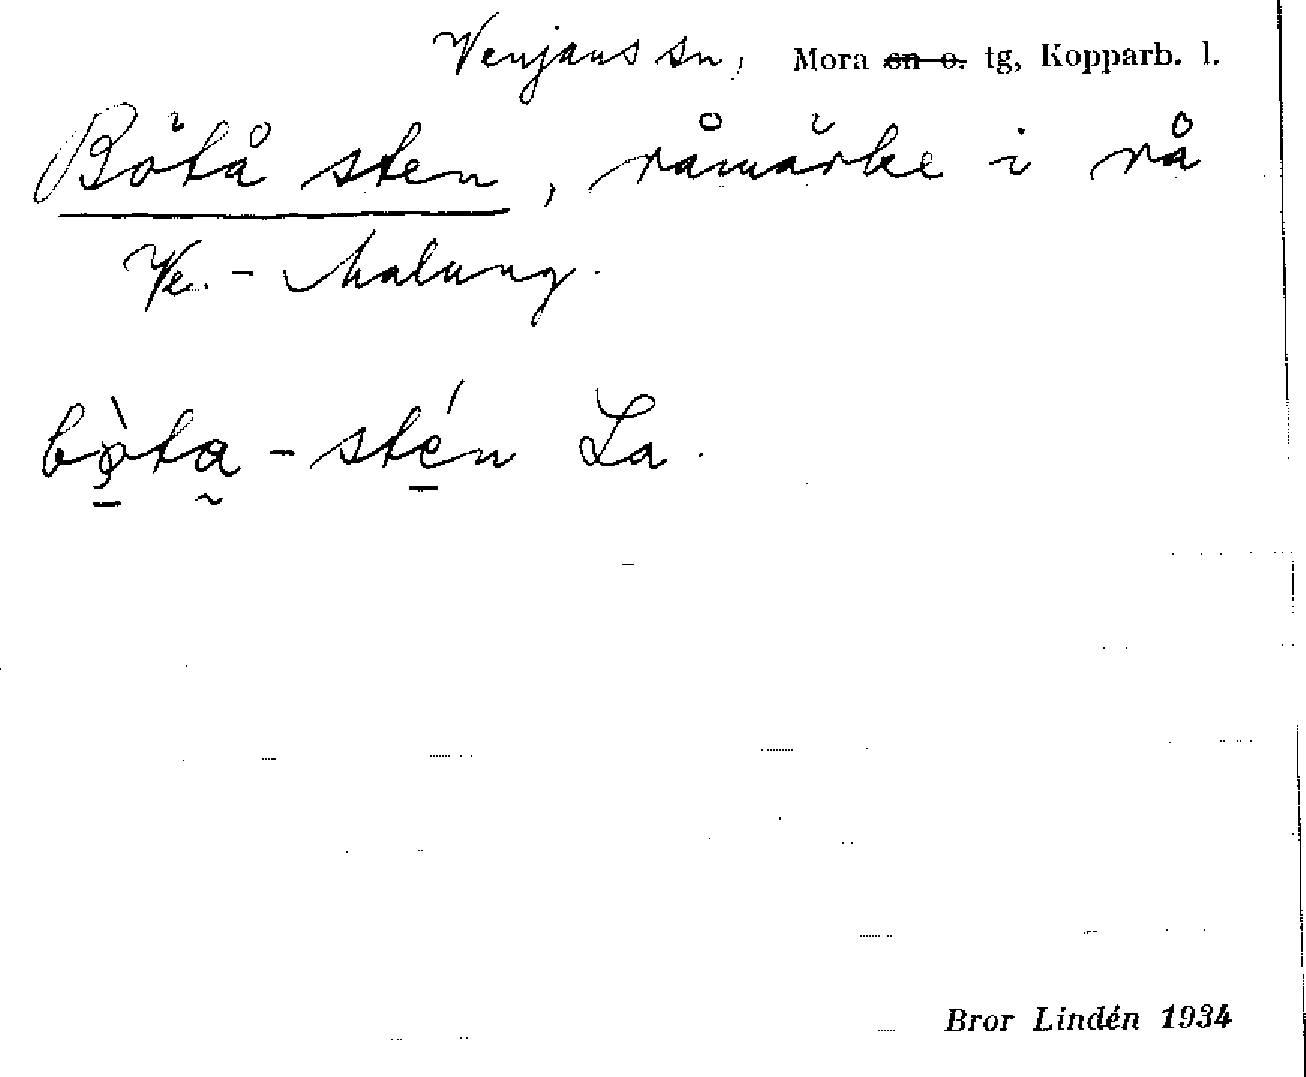 Venjans sn, Mora en o. tg, Kopparb. l.
Bötå sten, råmärke i rå
Ve. - Malung.
bö̀ta - stén La.
Bror Lindén 1934